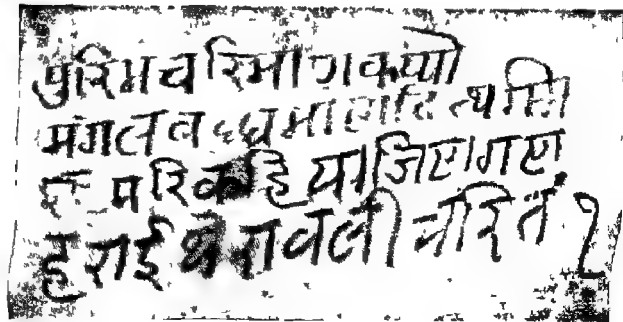 पुरिमचरिमाणकप्पो
मंगलवद्धमाणतित्थमि
इह परिकहियाजिणगण
हराईथेरावलीचरितं १